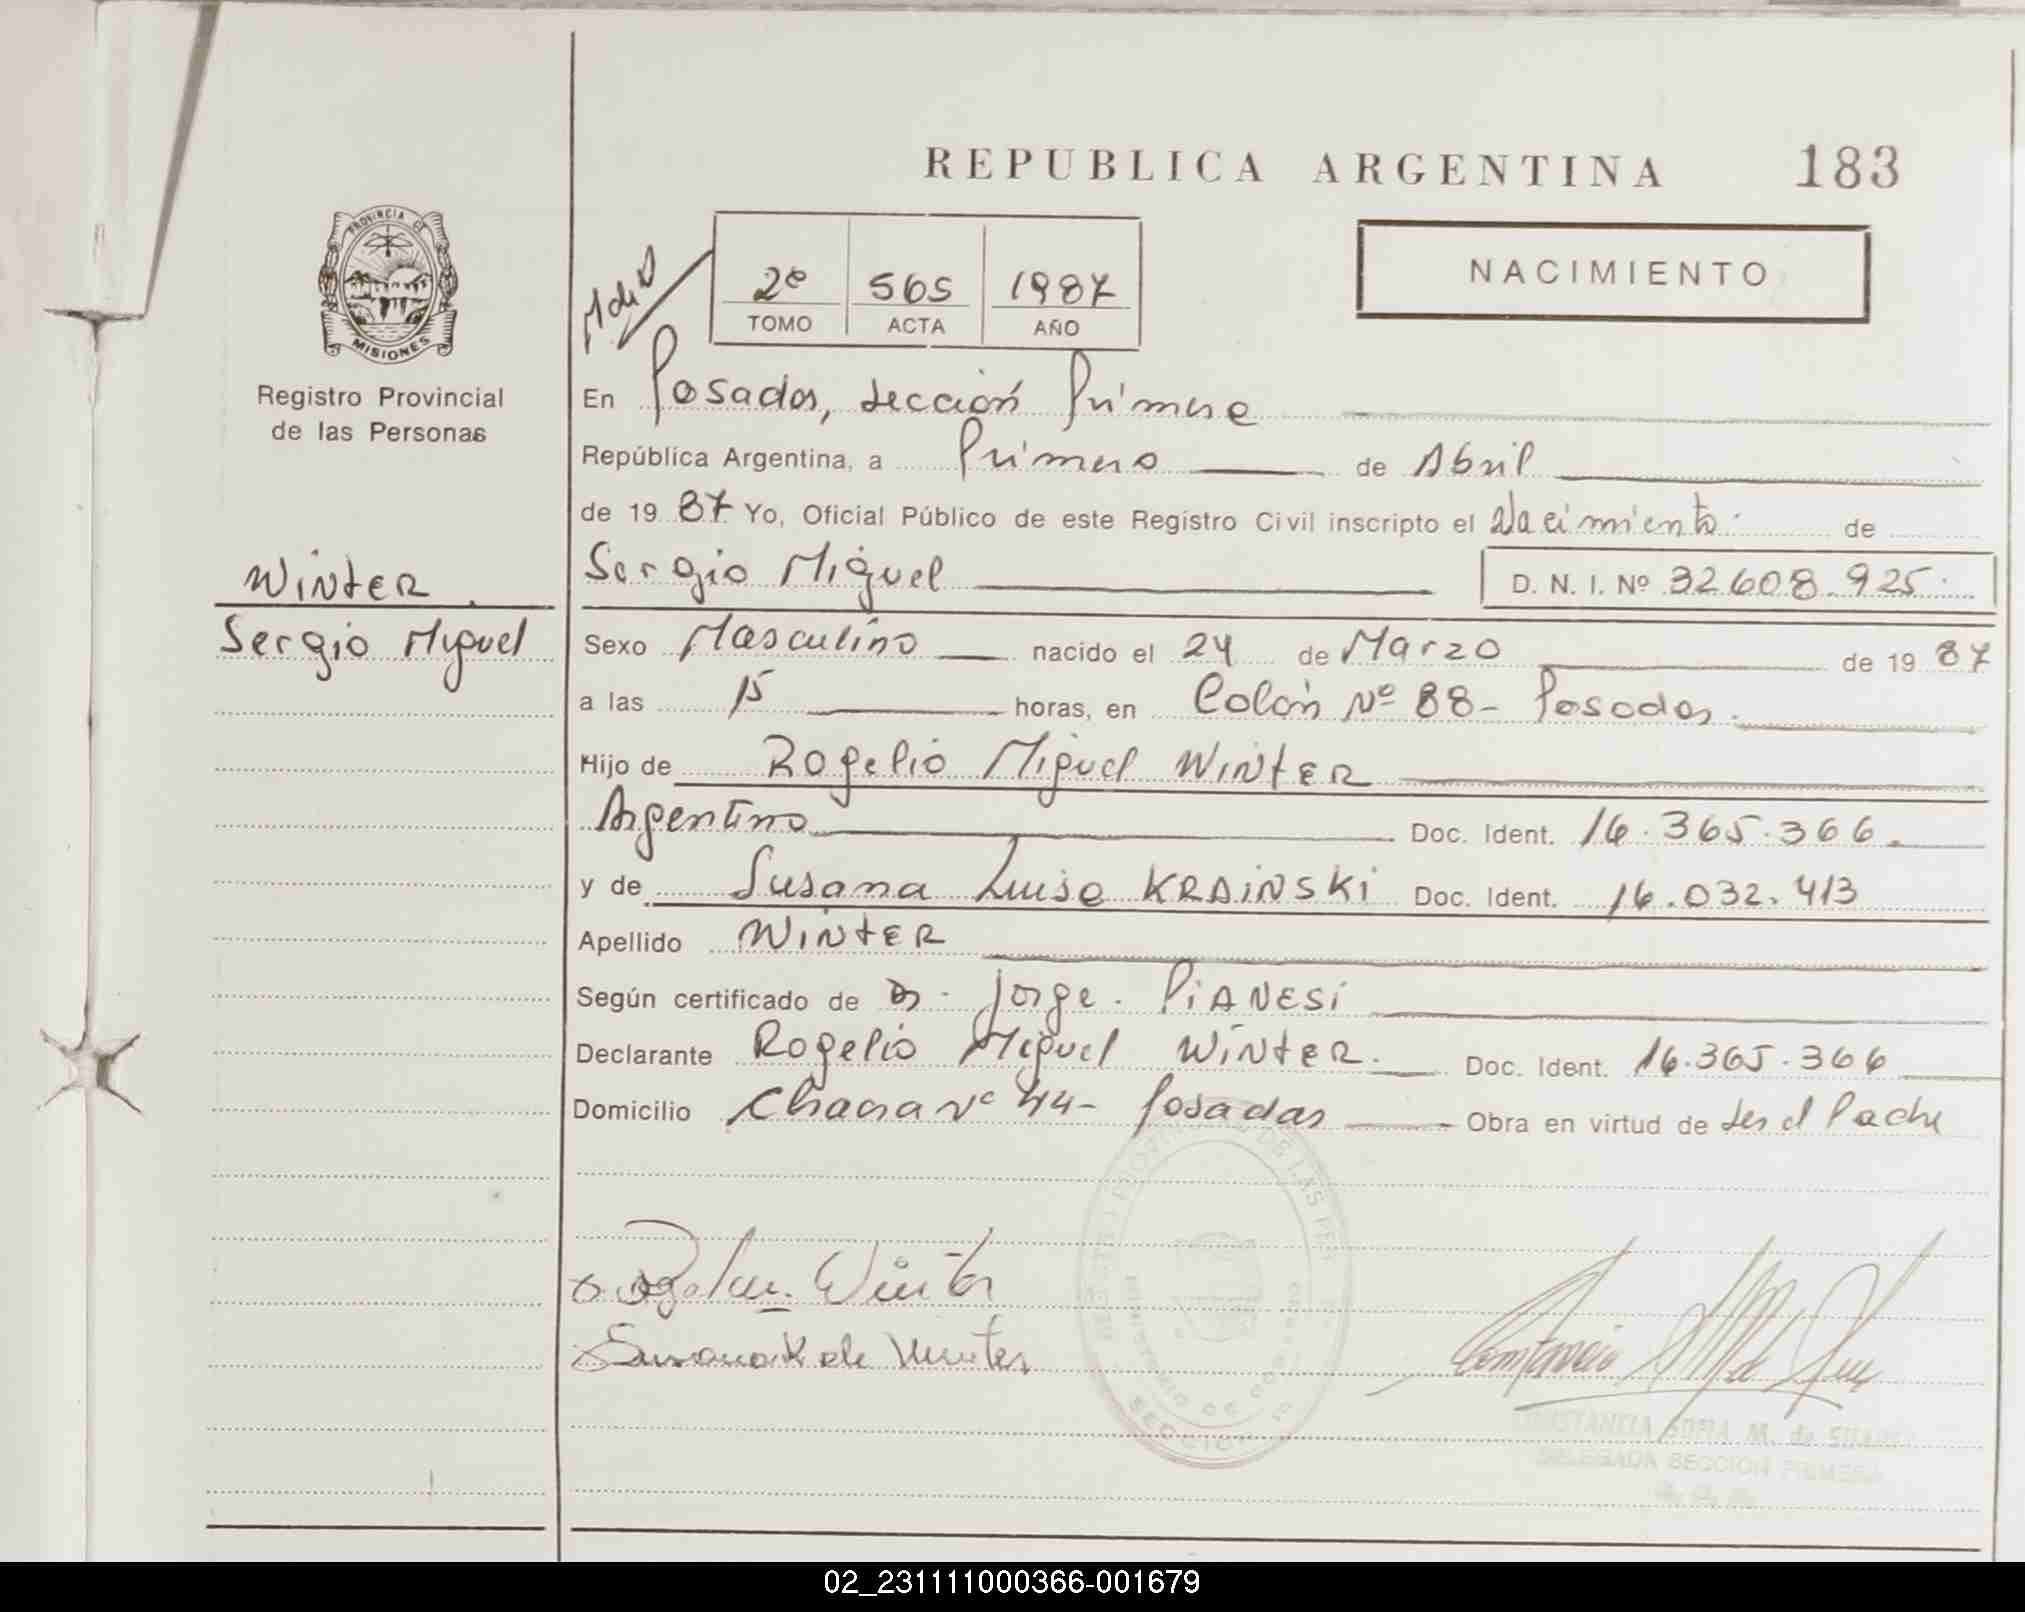 REPUBLICA ARGENTINA 183
PROVINCIA DE
MISIONES
Registro Provincial
de las Personas
2º 565 1987
TOMO ACTA AÑO
NACIMIENTO
En Posadas, Sección Primera
República Argentina, a Primero de Abril
de 1987 Yo, Oficial Público de este Registro Civil inscripto el Nacimiento de
WINTER
Sergio Miguel
Sergio Miguel D. N. I. Nº 32.608.925
Sexo Masculino nacido el 24 de Marzo de 1987
a las 15 horas, en Colón Nº 88- Posadas.
Hijo de Rogelio Miguel WINTER
Argentino Doc. Ident. 16.365.366
y de Susana Luisa KRAINSKI Doc. Ident. 16.032.413
Apellido WINTER
Según certificado de Dr. Jorge PIANESI
Declarante Rogelio Miguel WINTER. Doc. Ident. 16.365.366
Domicilio Chacra Nº 44- Posadas Obra en virtud de ser el Padre
Susana K de Winter
CONSTANCIA SOFIA M. de
DELEGADA SECCION PRIMERA
02_231111000366-001679